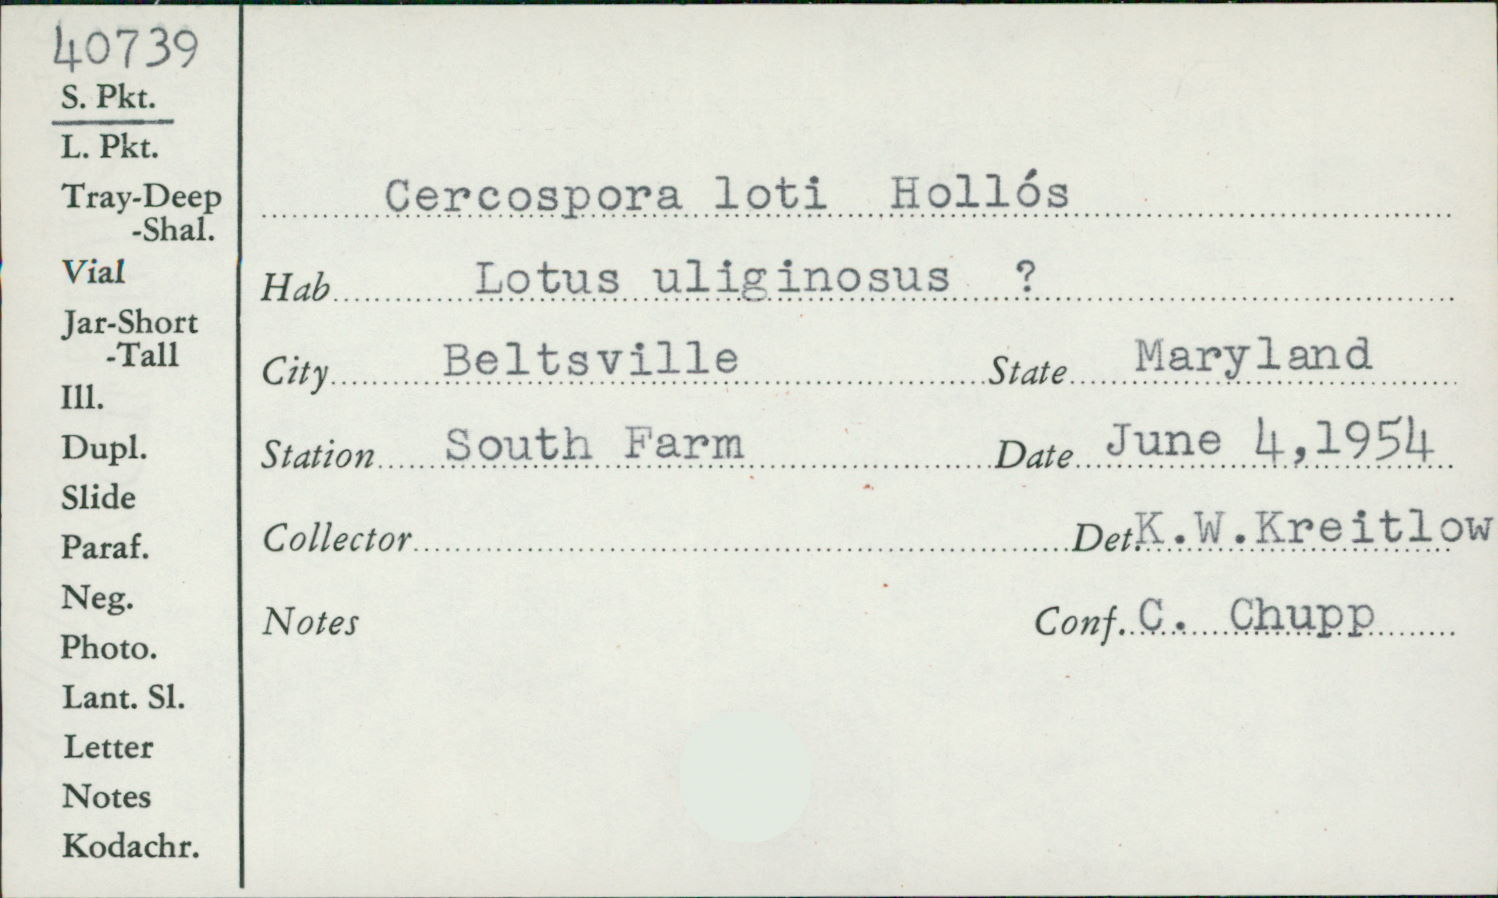 40739
S. Pkt.
L. Pkt.
Tray-Deep
-Shal.
Vial
Jar-Short
-Tall
Ill.
Dupl.
Slide
Paraf.
Neg.
Photo.
Lant. Sl.
Letter
Notes
Kodachr.
Cercospora loti Hollós
Hab Lotus uliginosus ?
City Beltsville State Maryland
Station South Farm Date June 4,1954
Collector Det. K.W.Kreitlow
Notes Conf. C. Chupp